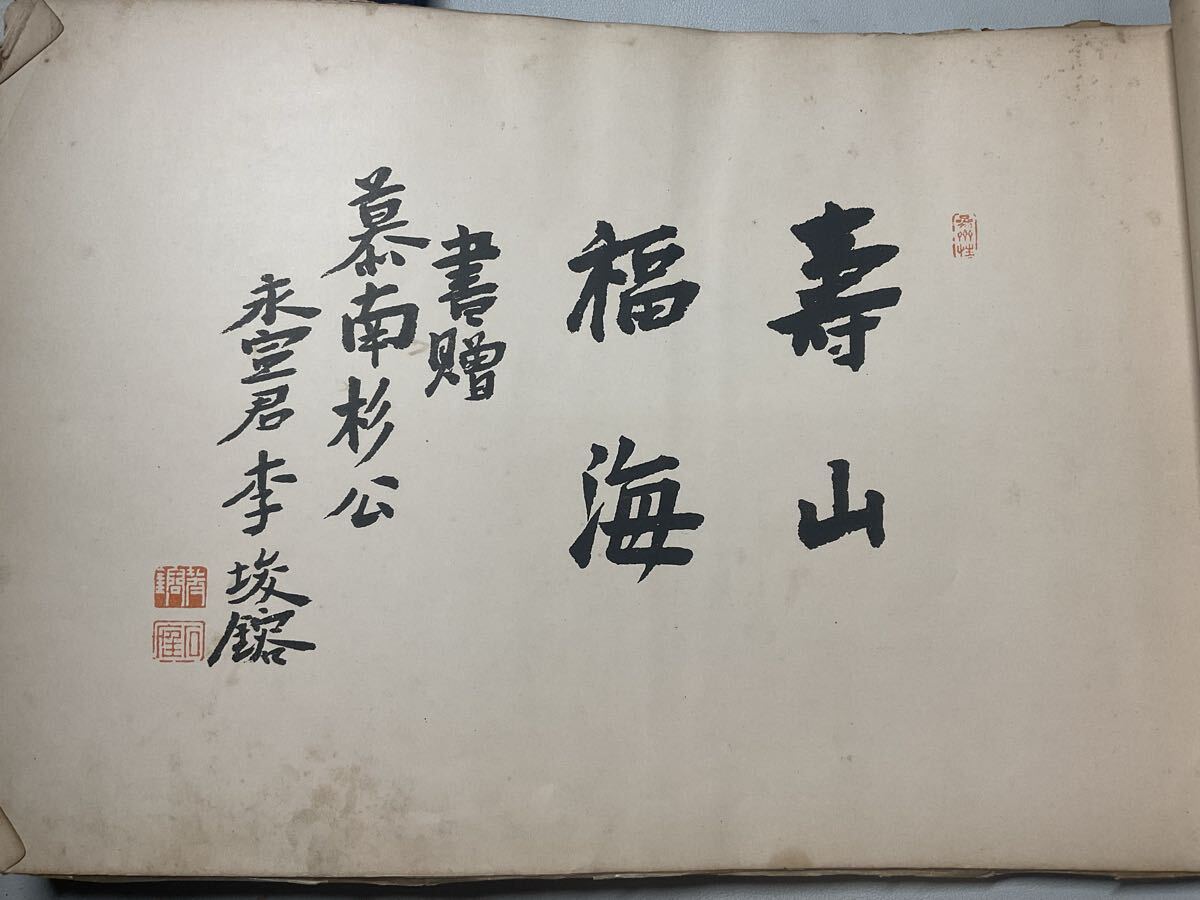 壽山
福海
書贈
慕南杉公
永宣君李埈鎔